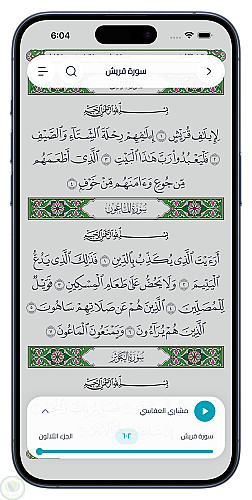 6:04
سورة قريش
بِسْمِ اللَّهِ الرَّحْمَٰنِ الرَّحِيمِ
لِإِيلَٰفِ قُرَيْشٍ ١ إِۦلَٰفِهِمْ رِحْلَةَ ٱلشِّتَآءِ وَٱلصَّيْفِ
٢ فَلْيَعْبُدُوا۟ رَبَّ هَٰذَا ٱلْبَيْتِ ٣ ٱلَّذِىٓ أَطْعَمَهُم
مِّن جُوعٍ وَءَامَنَهُم مِّنْ خَوْفٍۭ ٤
سُورَةُ المَاعُونِ
بِسْمِ اللَّهِ الرَّحْمَٰنِ الرَّحِيمِ
أَرَءَيْتَ ٱلَّذِى يُكَذِّبُ بِٱلدِّينِ ١ فَذَٰلِكَ ٱلَّذِى يَدُعُّ
ٱلْيَتِيمَ ٢ وَلَا يَحُضُّ عَلَىٰ طَعَامِ ٱلْمِسْكِينِ ٣ فَوَيْلٌ
لِّلْمُصَلِّينَ ٤ ٱلَّذِينَ هُمْ عَن صَلَاتِهِمْ سَاهُونَ ٥
ٱلَّذِينَ هُمْ يُرَآءُونَ ٦ وَيَمْنَعُونَ ٱلْمَاعُونَ ٧
سُورَةُ الكَوْثَرِ
بِسْمِ اللَّهِ الرَّحْمَٰنِ الرَّحِيمِ
مشاري العفاسي
سورة قريش ٦٠٢ الجزء الثلاثون